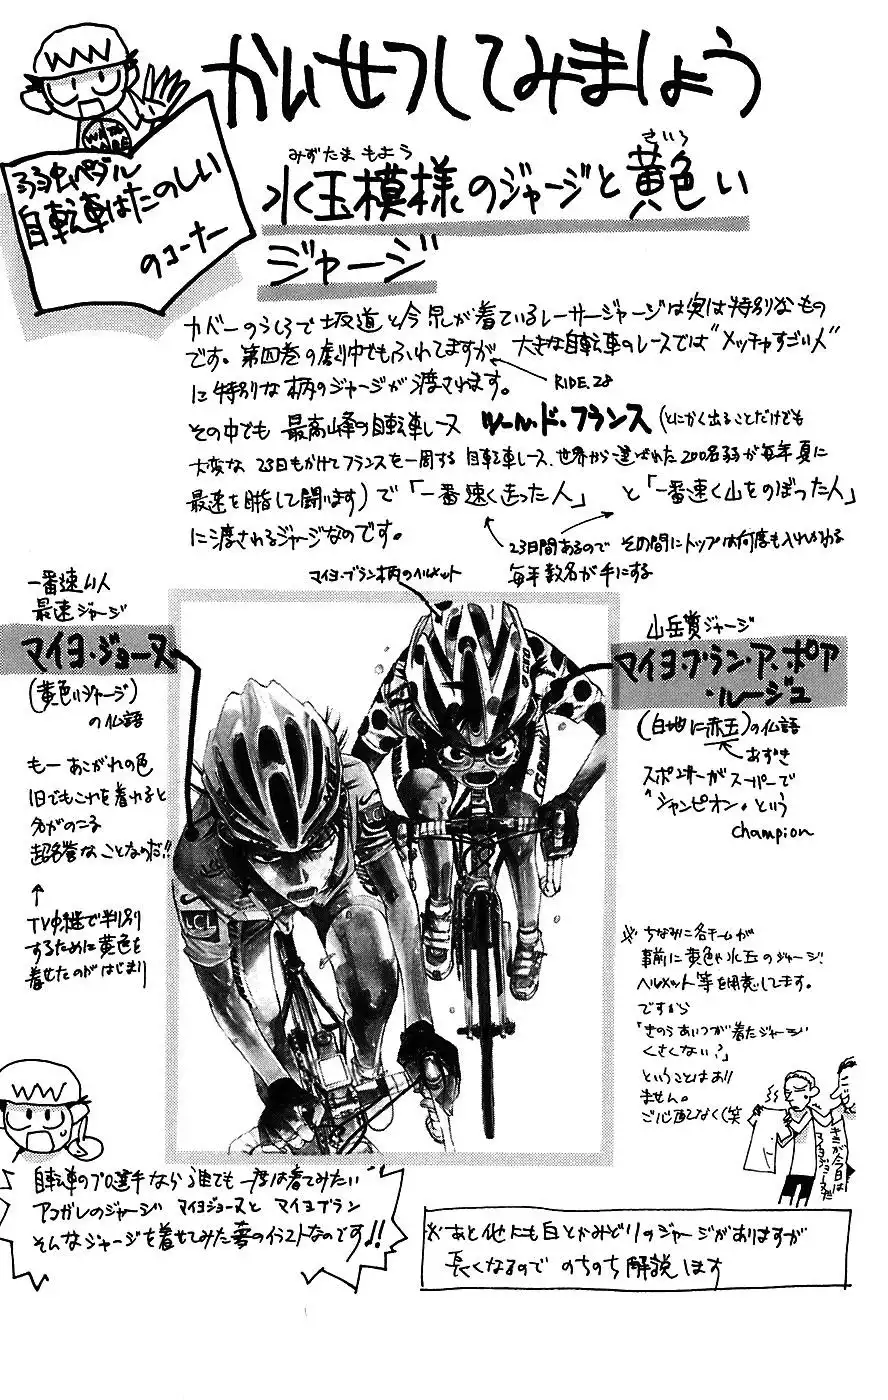 かいせつしてみましょう
弱虫ペダル
自転車はたのしい
のコーナー
WATA
ABE
みずたま もよう
水玉模様のジャージと黄色い
きいろ
ジャージ
カバーのうしろで坂道と今泉が着ているレーサージャージは実は特別なもの
です。第四巻の劇中でもふれてますが、大きな自転車のレースでは"メッチャすごい人"
に特別な柄のジャージが渡されます。
RIDE.28
その中でも 最高峰の自転車レース ツール・ド・フランス (とにかく出ることだけでも
大変な 23日もかけてフランスを一周する 自転車レース、世界から選ばれた200名弱が毎年夏に
最速を目指して闘います) で「一番速く走った人」 と「一番速く山をのぼった人」
に渡されるジャージなのです。
23日間あるので その間にトップは何度も入れかわる
毎年数名が手にする
マイヨ・ブラン柄のヘルメット
一番速い人
最速ジャージ
マイヨ・ジョーヌ
(黄色いジャージ)
の仏語
もー あこがれの色
1日でもこれを着れると
名がのこる
超名誉なことなのだ!!
TV中継で判別
するために黄色を
着せたのがはじまり
LCL
山岳賞ジャージ
マイヨ・ブラン・ア・ポア
・ルージュ
(白地に赤玉)の仏語
あずき
スポンサーがスーパーで
"シャンピオン"という
champion
※ちなみに各チームが
事前に黄色や水玉のジャージ、
ヘルメット等を用意してます。
ですから
「きのうあいつが着たジャージ
くさくない?」
ということはあり
ません。
ご心配なく(笑
キミが今日は
マイヨジョーヌだ
自転車のプロ選手なら誰でも一度は着てみたい
アコガレのジャージ マイヨジョーヌと マイヨブラン
そんなジャージを着せてみた夢のイラストなのです!!
※あと他にも白とかみどりのジャージがありますが
長くなるので のちのち解説します